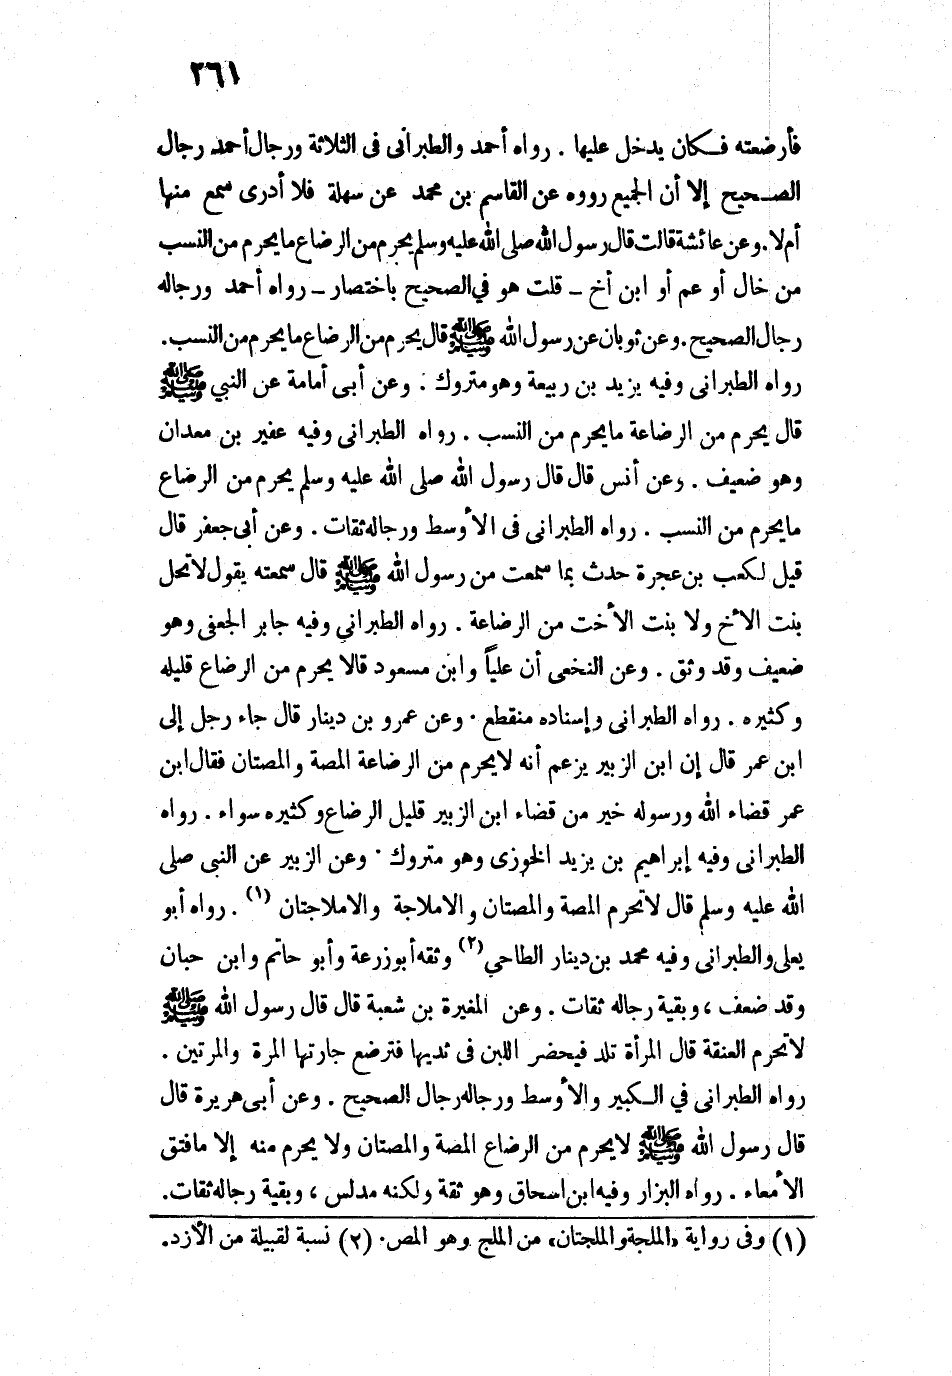 ٢٦١
فأرضعته فكان يدخل عليها . رواه أحمد والطبرانى فى الثلاثة ورجال أحمد رجال
الصحيح إلا أن الجميع رووه عن القاسم بن محمد عن سهلة فلا أدرى سمع منها
أم لا . وعن عائشة قالت قال رسول الله صلى الله عليه وسلم يحرم من الرضاع ما يحرم من النسب
من خال أو عم أو ابن أخ ــ قلت هو في الصحيح باختصار ــ رواه أحمد ورجاله
رجال الصحيح . وعن ثوبان عن رسول الله ﷺ قال يحرم من الرضاع ما يحرم من النسب .
رواه الطبرانى وفيه يزيد بن ربيعة وهو متروك . وعن أبى أمامة عن النبي ﷺ
قال يحرم من الرضاعة ما يحرم من النسب . رواه الطبرانى وفيه عفير بن معدان
وهو ضعيف . وعن أنس قال قال رسول الله صلى الله عليه وسلم يحرم من الرضاع
ما يحرم من النسب . رواه الطبرانى فى الأوسط ورجاله ثقات . وعن أبى جعفر قال
قيل لكعب بن عجرة حدث بما سمعت من رسول الله ﷺ قال سمعته يقول لا تحل
بنت الأخ ولا بنت الأخت من الرضاعة . رواه الطبراني وفيه جابر الجعفى وهو
ضعيف وقد وثق . وعن النخعى أن علياً وابن مسعود قالا يحرم من الرضاع قليله
وكثيره . رواه الطبرانى وإسناده منقطع . وعن عمرو بن دينار قال جاء رجل إلى
ابن عمر قال إن ابن الزبير يزعم أنه لا يحرم من الرضاعة المصة والمصتان فقال ابن
عمر قضاء الله ورسوله خير من قضاء ابن الزبير قليل الرضاع وكثيره سواء . رواه
الطبرانى وفيه إبراهيم بن يزيد الخوزى وهو متروك . وعن الزبير عن النبى صلى
الله عليه وسلم قال لا تحرم المصة والمصتان والاملاجة والاملاجتان (١) . رواه أبو
يعلى والطبرانى وفيه محمد بن دينار الطاحي (٢) وثقه أبو زرعة وأبو حاتم وابن حبان
وقد ضعف ، وبقية رجاله ثقات . وعن المغيرة بن شعبة قال قال رسول الله ﷺ
لا تحرم العنقة قال المرأة تلد فيحضر اللبن فى ثديها فترضع جارتها المرة والمرتين .
رواه الطبرانى في الكبير والأوسط ورجاله رجال الصحيح . وعن أبى هريرة قال
قال رسول الله ﷺ لا يحرم من الرضاع المصة والمصتان ولا يحرم منه إلا ما فتق
الأمعاء . رواه البزار وفيه ابن اسحاق وهو ثقة ولكنه مدلس ، وبقية رجاله ثقات .
(١) وفى رواية «الملجة والملجتان» من الملج وهو المص . (٢) نسبة لقبيلة من الأزد .